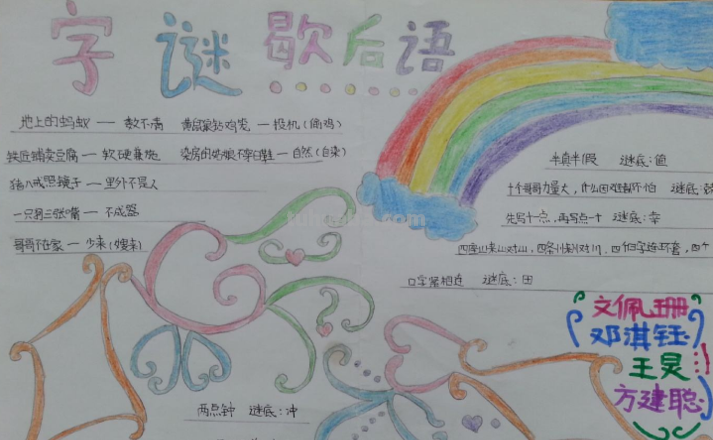 字谜歇后语
地上的蚂蚁 — 数不清
黄鼠狼钻鸡笼 — 投机(偷鸡)
铁匠铺卖豆腐 — 软硬兼施
染房的姑娘不穿白鞋 — 自然(自来)
猪八戒照镜子 — 里外不是人
一只 — 不成器
哥哥不在家 — 少来(嫂来)
半真半假 谜底:值
十个哥哥力量大,什么困难都不怕 谜底:
先写十一点,再写点一十 谜底:幸
四座山山对山,四条川川对川,四个口字连环套,四个
口字紧相连 谜底:田
文佩珊
邓淇钰
王炅
方建聪
两点钟 谜底:冲